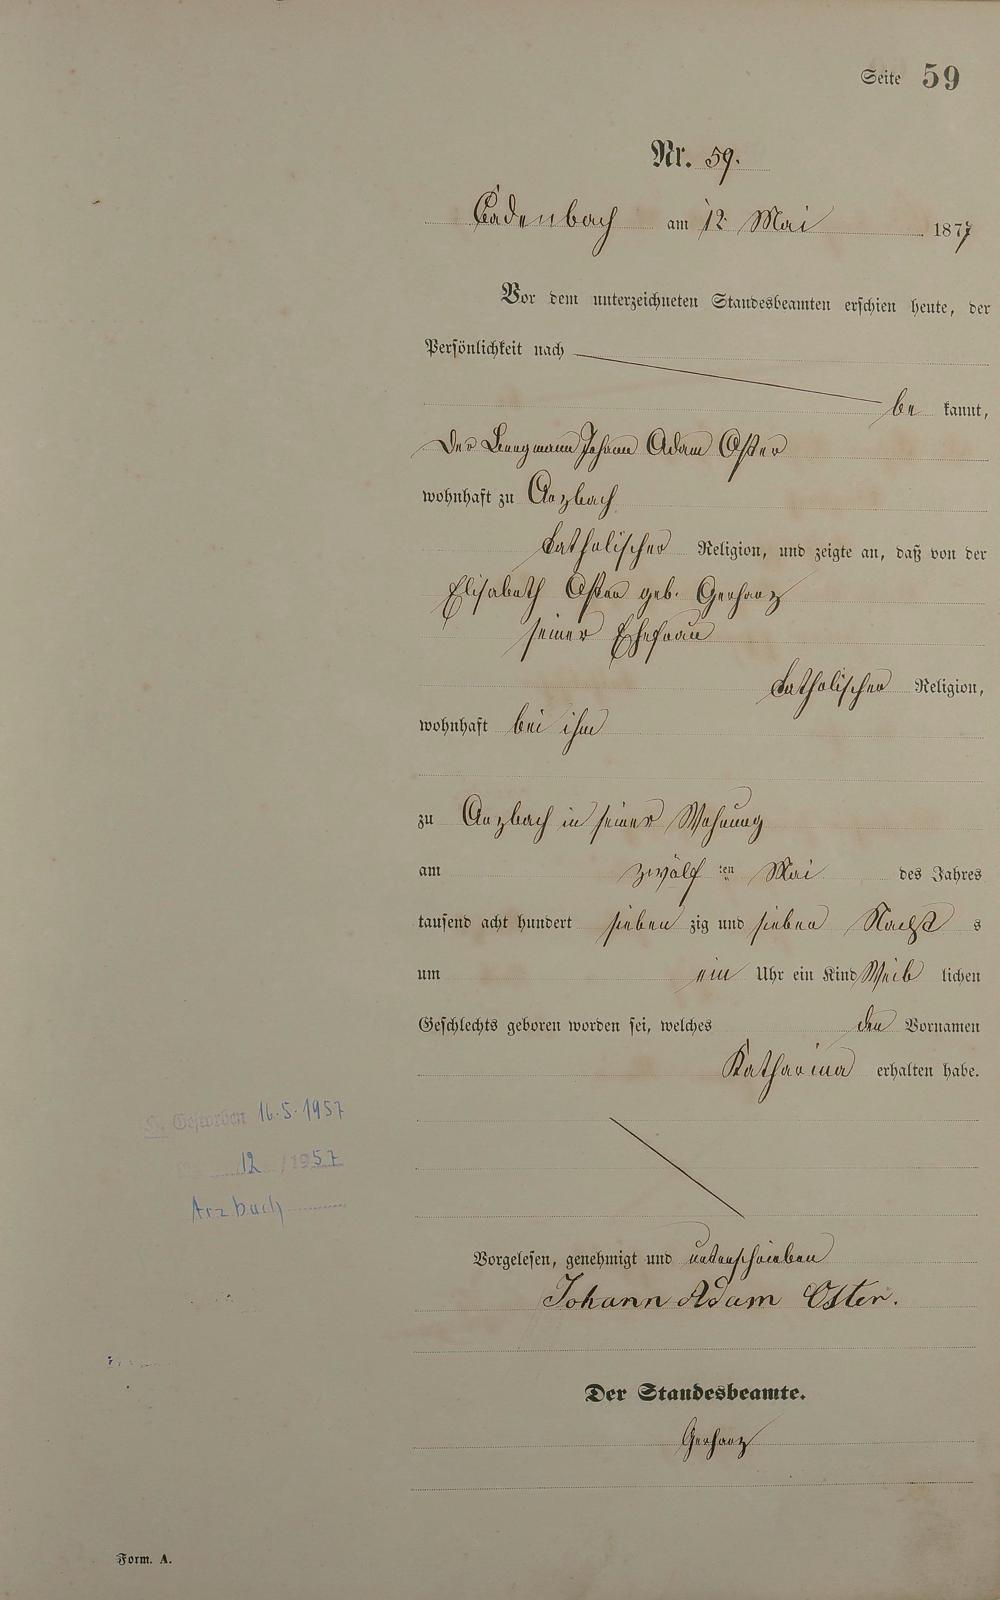 Seite 59
Nr. 59.
Cadenbach am 12 Mai 1877
Vor dem unterzeichneten Standesbeamten erschien heute, der
Persönlichkeit nach
be kannt,
Der Bergmann Johann Adam Oster
wohnhaft zu Arzbach
katholischer Religion, und zeigte an, daß von der
Elisabeth Oster geb. Gerharz
seiner Ehefrau
katholischer Religion,
wohnhaft bei ihm
zu Arzbach in seiner Wohnung
am zwölf ten Mai des Jahres
tausend acht hundert sieben zig und sieben Nacht s
um ein Uhr ein Kind Weib lichen
Geschlechts geboren worden sei, welches den Vornamen
Katharina erhalten habe.
Gestorben 16.5.1957
12 /1957
Arzbach
Vorgelesen, genehmigt und unterschrieben
Johann Adam Oster.
Der Standesbeamte.
Gerharz
Form. A.